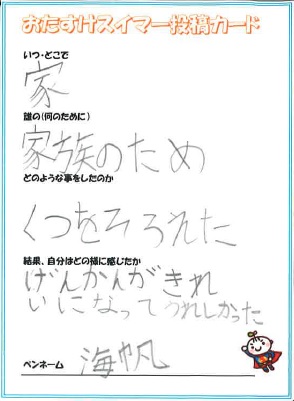 おたすけスイマー投稿カード
いつ・どこで
家
誰の(何のために)
家族のため
どのような事をしたのか
くつをそろれた
結果、自分はどの様に感じたか
げんかんがきれ
いになってうれしかった
ペンネーム 海帆